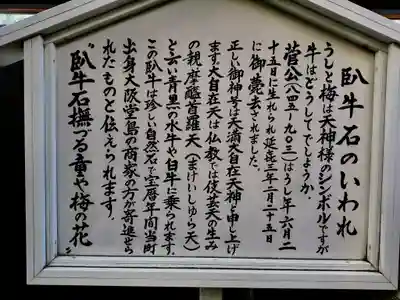 臥牛石のいわれ
うしと梅は天神様のシンボルですが
牛はどうしてでしようか。
菅公(八四五~九〇三)はうし年六月二
十五日に生れられ延㐂三年二月二十五日
に御薨去されました。
正しい御神号は天満大自在天神と申し上げ
ます大自在天は仏教では伎芸天の生み
の親摩醯首羅天(まけいしゆら天)
と云い青黒の水牛や白牛に乗られます。
この臥牛は珍しい自然石で宝暦年間当町
出身大阪堂島の商家の方が寄進せら
れたものと伝えられます。
〝臥牛石撫づる童や梅の花〟